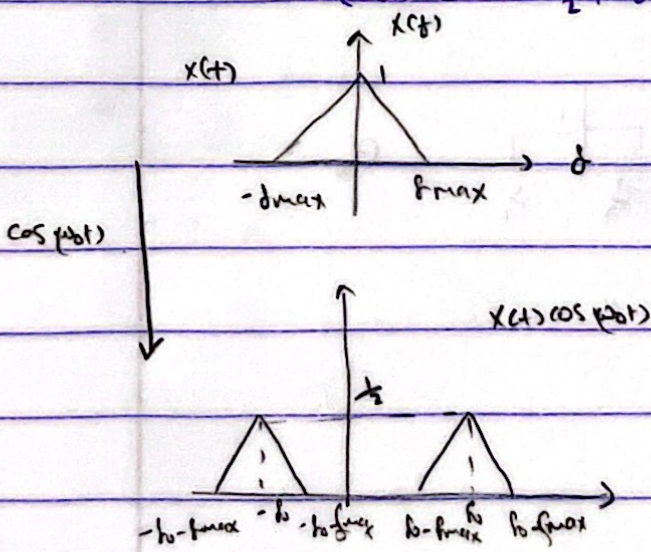 X(f)
x(t)
1
-fmax fmax f
cos(ω₀t)
x(t) cos(ω₀t)
1/2
-f₀-fmax -f₀ -f₀-fmax f₀-fmax f₀ f₀-fmax